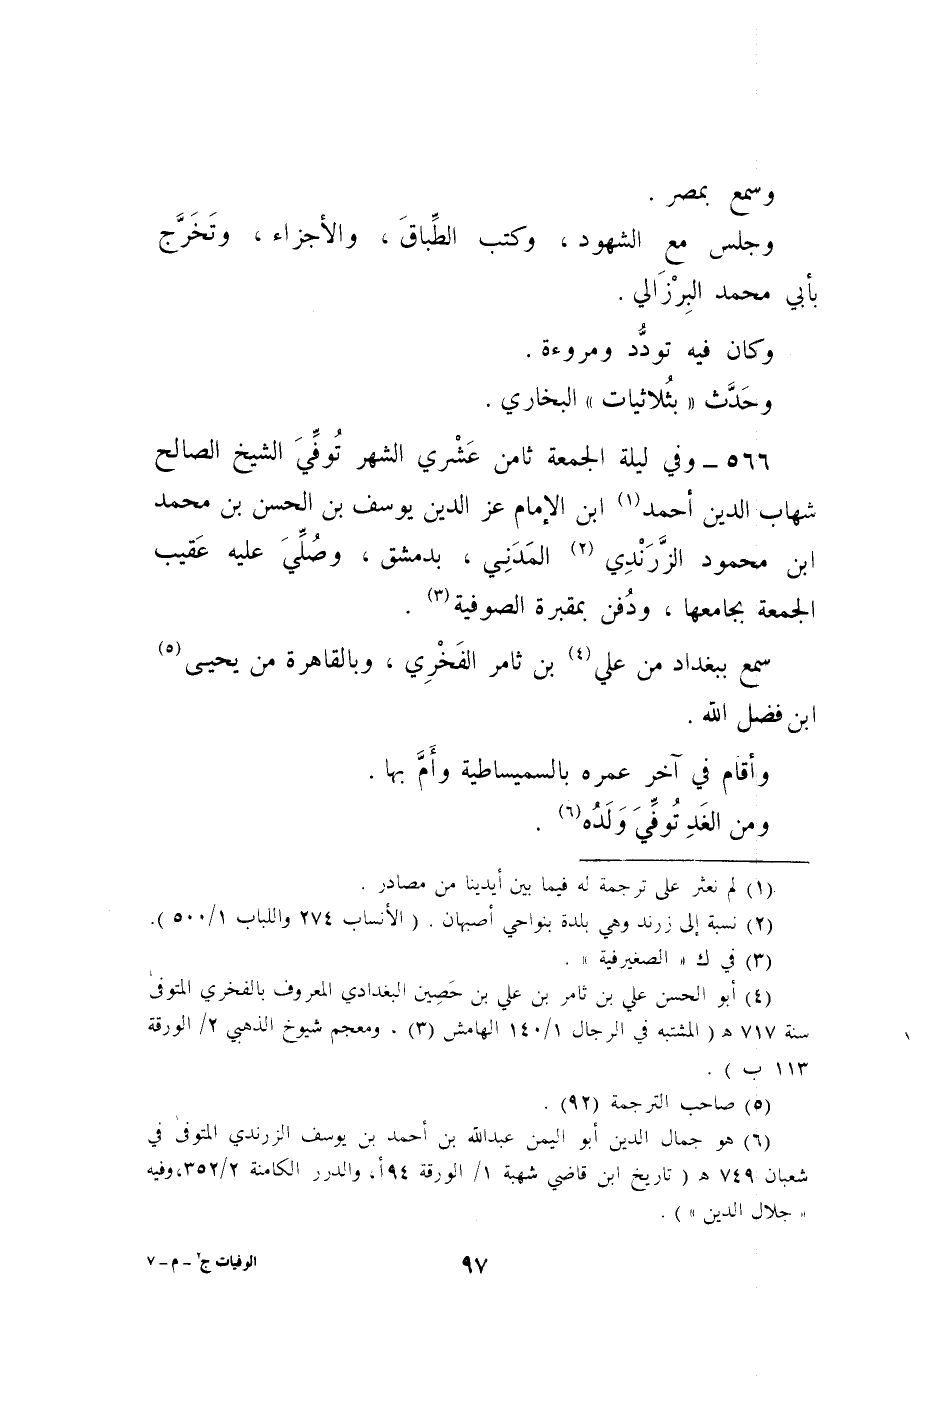 وسمع بمصر .
وجلس مع الشهود ، وكتب الطِّباقَ ، والأجزاء ، وتَخَرَّج
بأبي محمد البِرْزَالي .
وكان فيه تودُّد ومروءة .
وحَدَّث « بثُلاثيات » البخاري .
٥٦٦ ــ وفي ليلة الجمعة ثامن عَشْري الشهر تُوفِّيَ الشيخ الصالح
شهاب الدين أحمد(١) ابن الإمام عز الدين يوسف بن الحسن بن محمد
ابن محمود الزَّرَنْدِي (٢) المَدَنِي ، بدمشق ، وصُلِّيَ عليه عَقيب
الجمعة بجامعها ، ودُفن بمقبرة الصوفية(٣) .
سمع ببغداد من علي(٤) بن ثامر الفَخْرِي ، وبالقاهرة من يحيى(٥)
ابن فضل الله .
وأقام في آخر عمره بالسميساطية وأَمَّ بها .
ومن الغَدِ تُوفِّيَ وَلَدُه(٦) .
(١) لم نعثر على ترجمة له فيما بين أيدينا من مصادر .
(٢) نسبة إلى زرند وهي بلدة بنواحي أصبهان . ( الأنساب ٢٧٤ واللباب ٥٠٠/١ ).
(٣) في ك « الصغيرفية » .
(٤) أبو الحسن علي بن ثامر بن علي بن حَصِين البغدادي المعروف بالفخري المتوفىٰ
سنة ٧١٧ هـ ( المشتبه في الرجال ١٤٠/١ الهامش (٣) . ومعجم شيوخ الذهبي ٢/ الورقة
١١٣ ب ) .
(٥) صاحب الترجمة (٩٢) .
(٦) هو جمال الدين أبو اليمن عبدالله بن أحمد بن يوسف الزرندي المتوفىٰ في
شعبان ٧٤٩ هـ ( تاريخ ابن قاضي شهبة ١/ الورقة ٩٤أ، والدرر الكامنة ٣٥٢/٢،وفيه
« جلال الدين » ) .
٩٧
الوفيات ج٢ ــ م ــ ٧